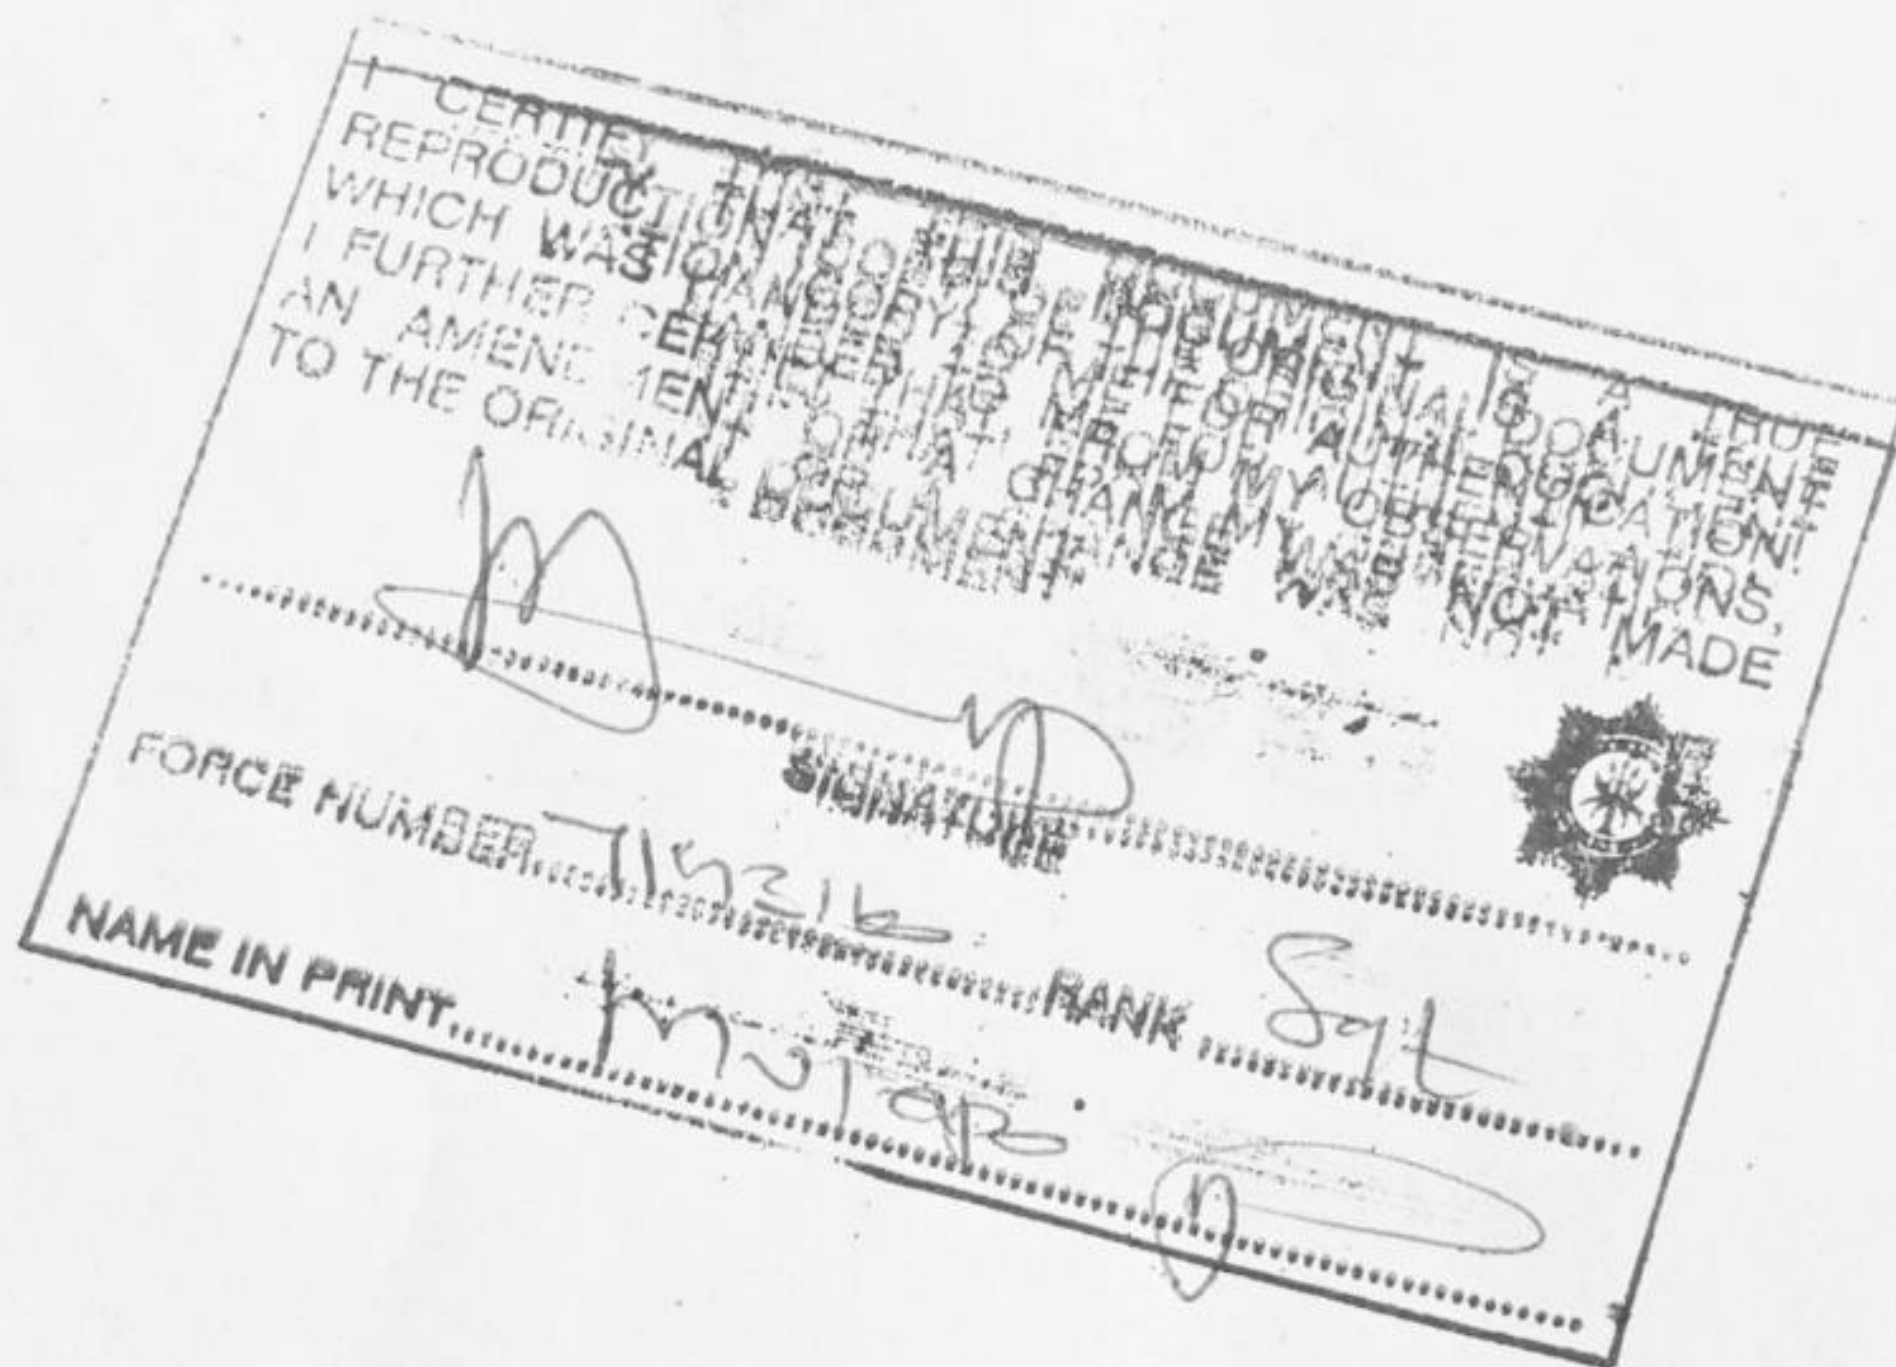 I CERTIFY THAT THIS DOCUMENT IS A TRUE
REPRODUCTION COPY OF THE ORIGINAL DOCUMENT
WHICH WAS HANDED TO ME FOR AUTHENTICATION.
I FURTHER CERTIFY THAT FROM MY OBSERVATIONS,
AN AMENDMENT OR A CHANGE WAS NOT MADE
TO THE ORIGINAL DOCUMENT
SIGNATURE
FORCE NUMBER RANK Sgt
NAME IN PRINT